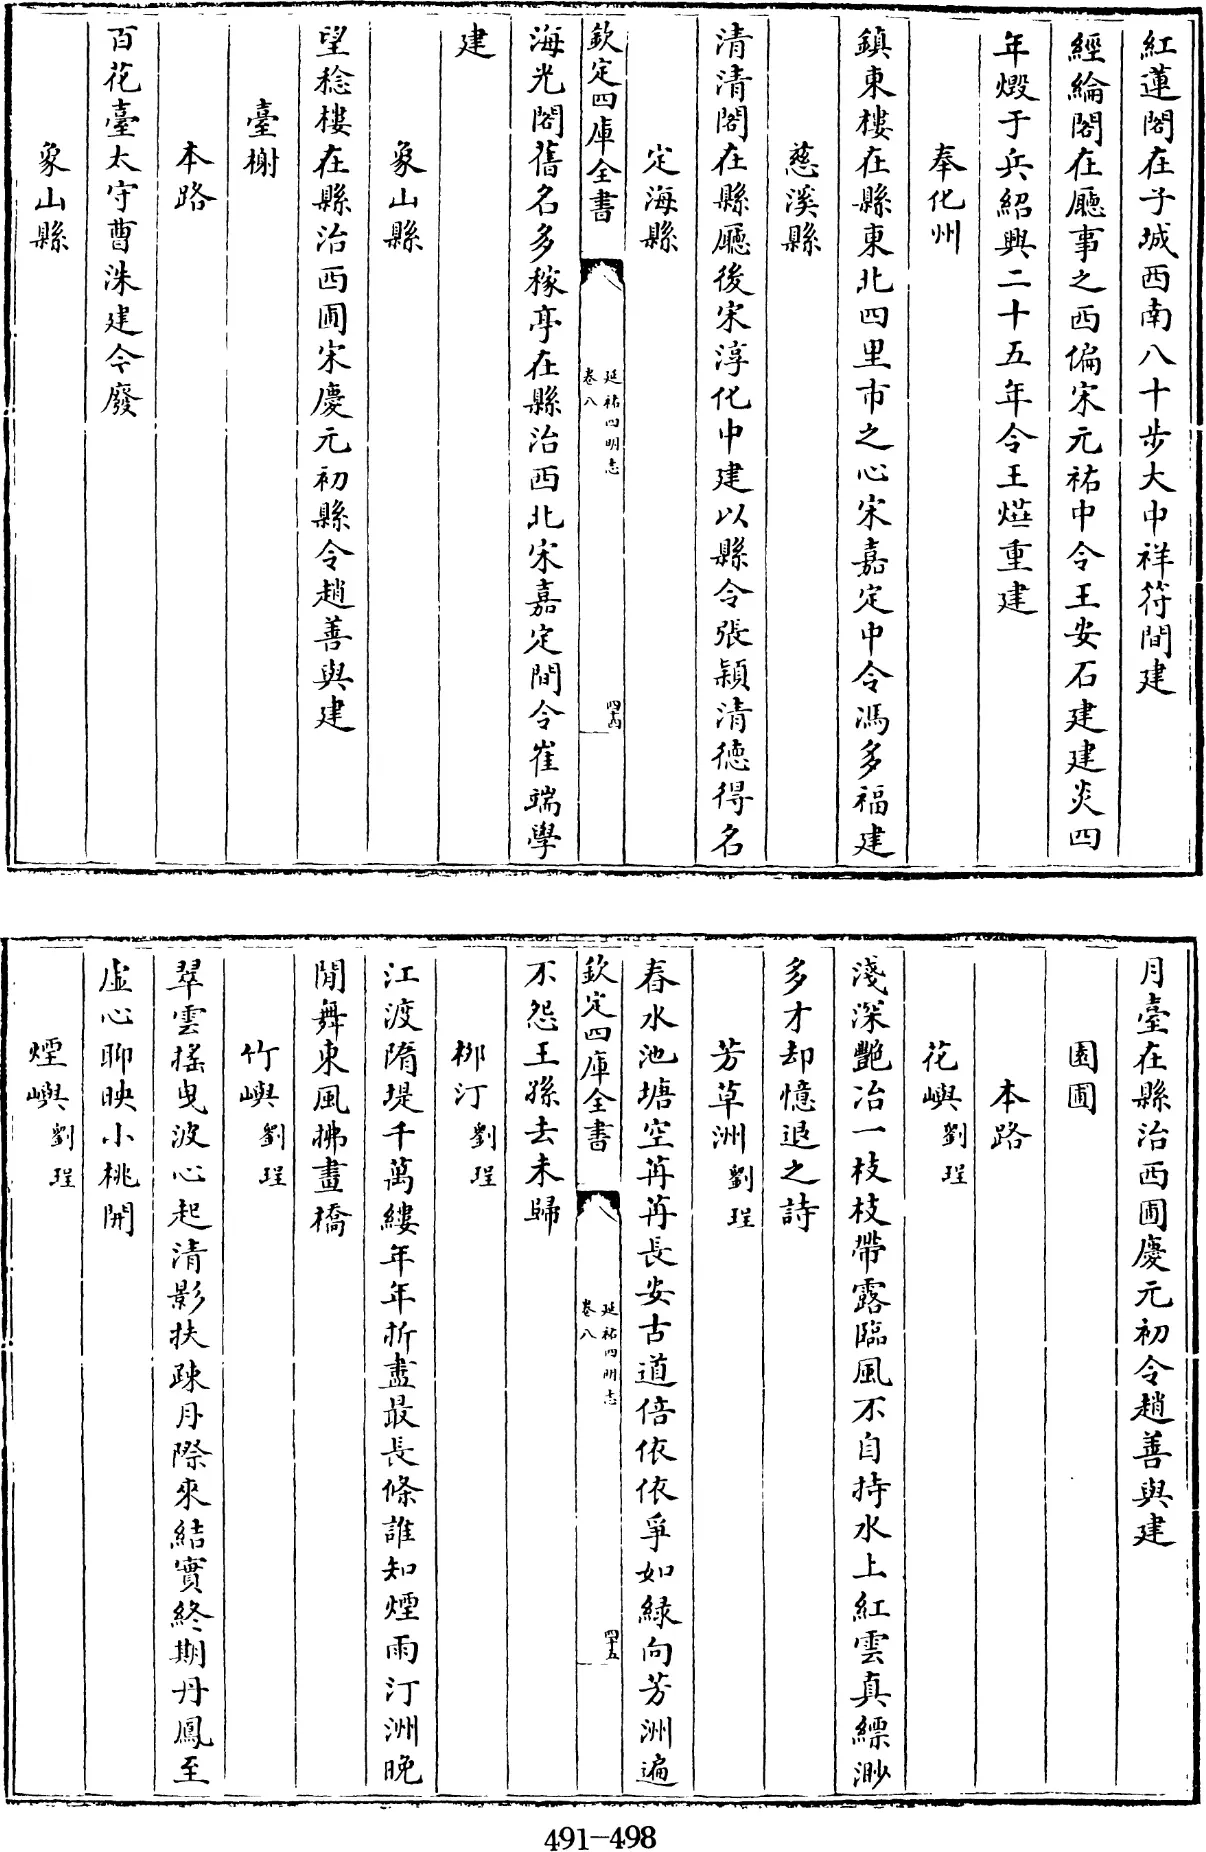 紅蓮閣在子城西南八十步大中祥符間建
經綸閣在廳事之西偏宋元祐中令王安石建建炎四
年燬于兵紹興二十五年令王燕重建
奉化州
鎮東樓在縣東北四里市之心宋嘉定中令馮多福建
慈溪縣
清清閣在縣廳後宋淳化中建以縣令張穎清德得名
定海縣
欽定四庫全書
延祐四明志
卷八
四十四
海光閣舊名多稼亭在縣治西北宋嘉定間令崔端學
建
象山縣
望稔樓在縣治西圃宋慶元初縣令趙善與建
臺榭
本路
百花臺太守曹洙建今廢
象山縣
月臺在縣治西圃慶元初令趙善與建
園圃
本路
花嶼劉珵
淺深艷冶一枝枝帶露臨風不自持水上紅雲真縹渺
多才却憶退之詩
芳草洲劉珵
春水池塘空苒苒長安古道倍依依爭如緑向芳洲遍
欽定四庫全書
延祐四明志
卷八
四十五
不怨王孫去未歸
柳汀劉珵
江渡隋堤千萬縷年年折盡最長條誰知煙雨汀洲晚
閒舞東風拂畫橋
竹嶼劉珵
翠雲搖曳波心起清影扶疎月際來結實終期丹鳳至
虛心聊映小桃開
煙嶼劉珵
491-498